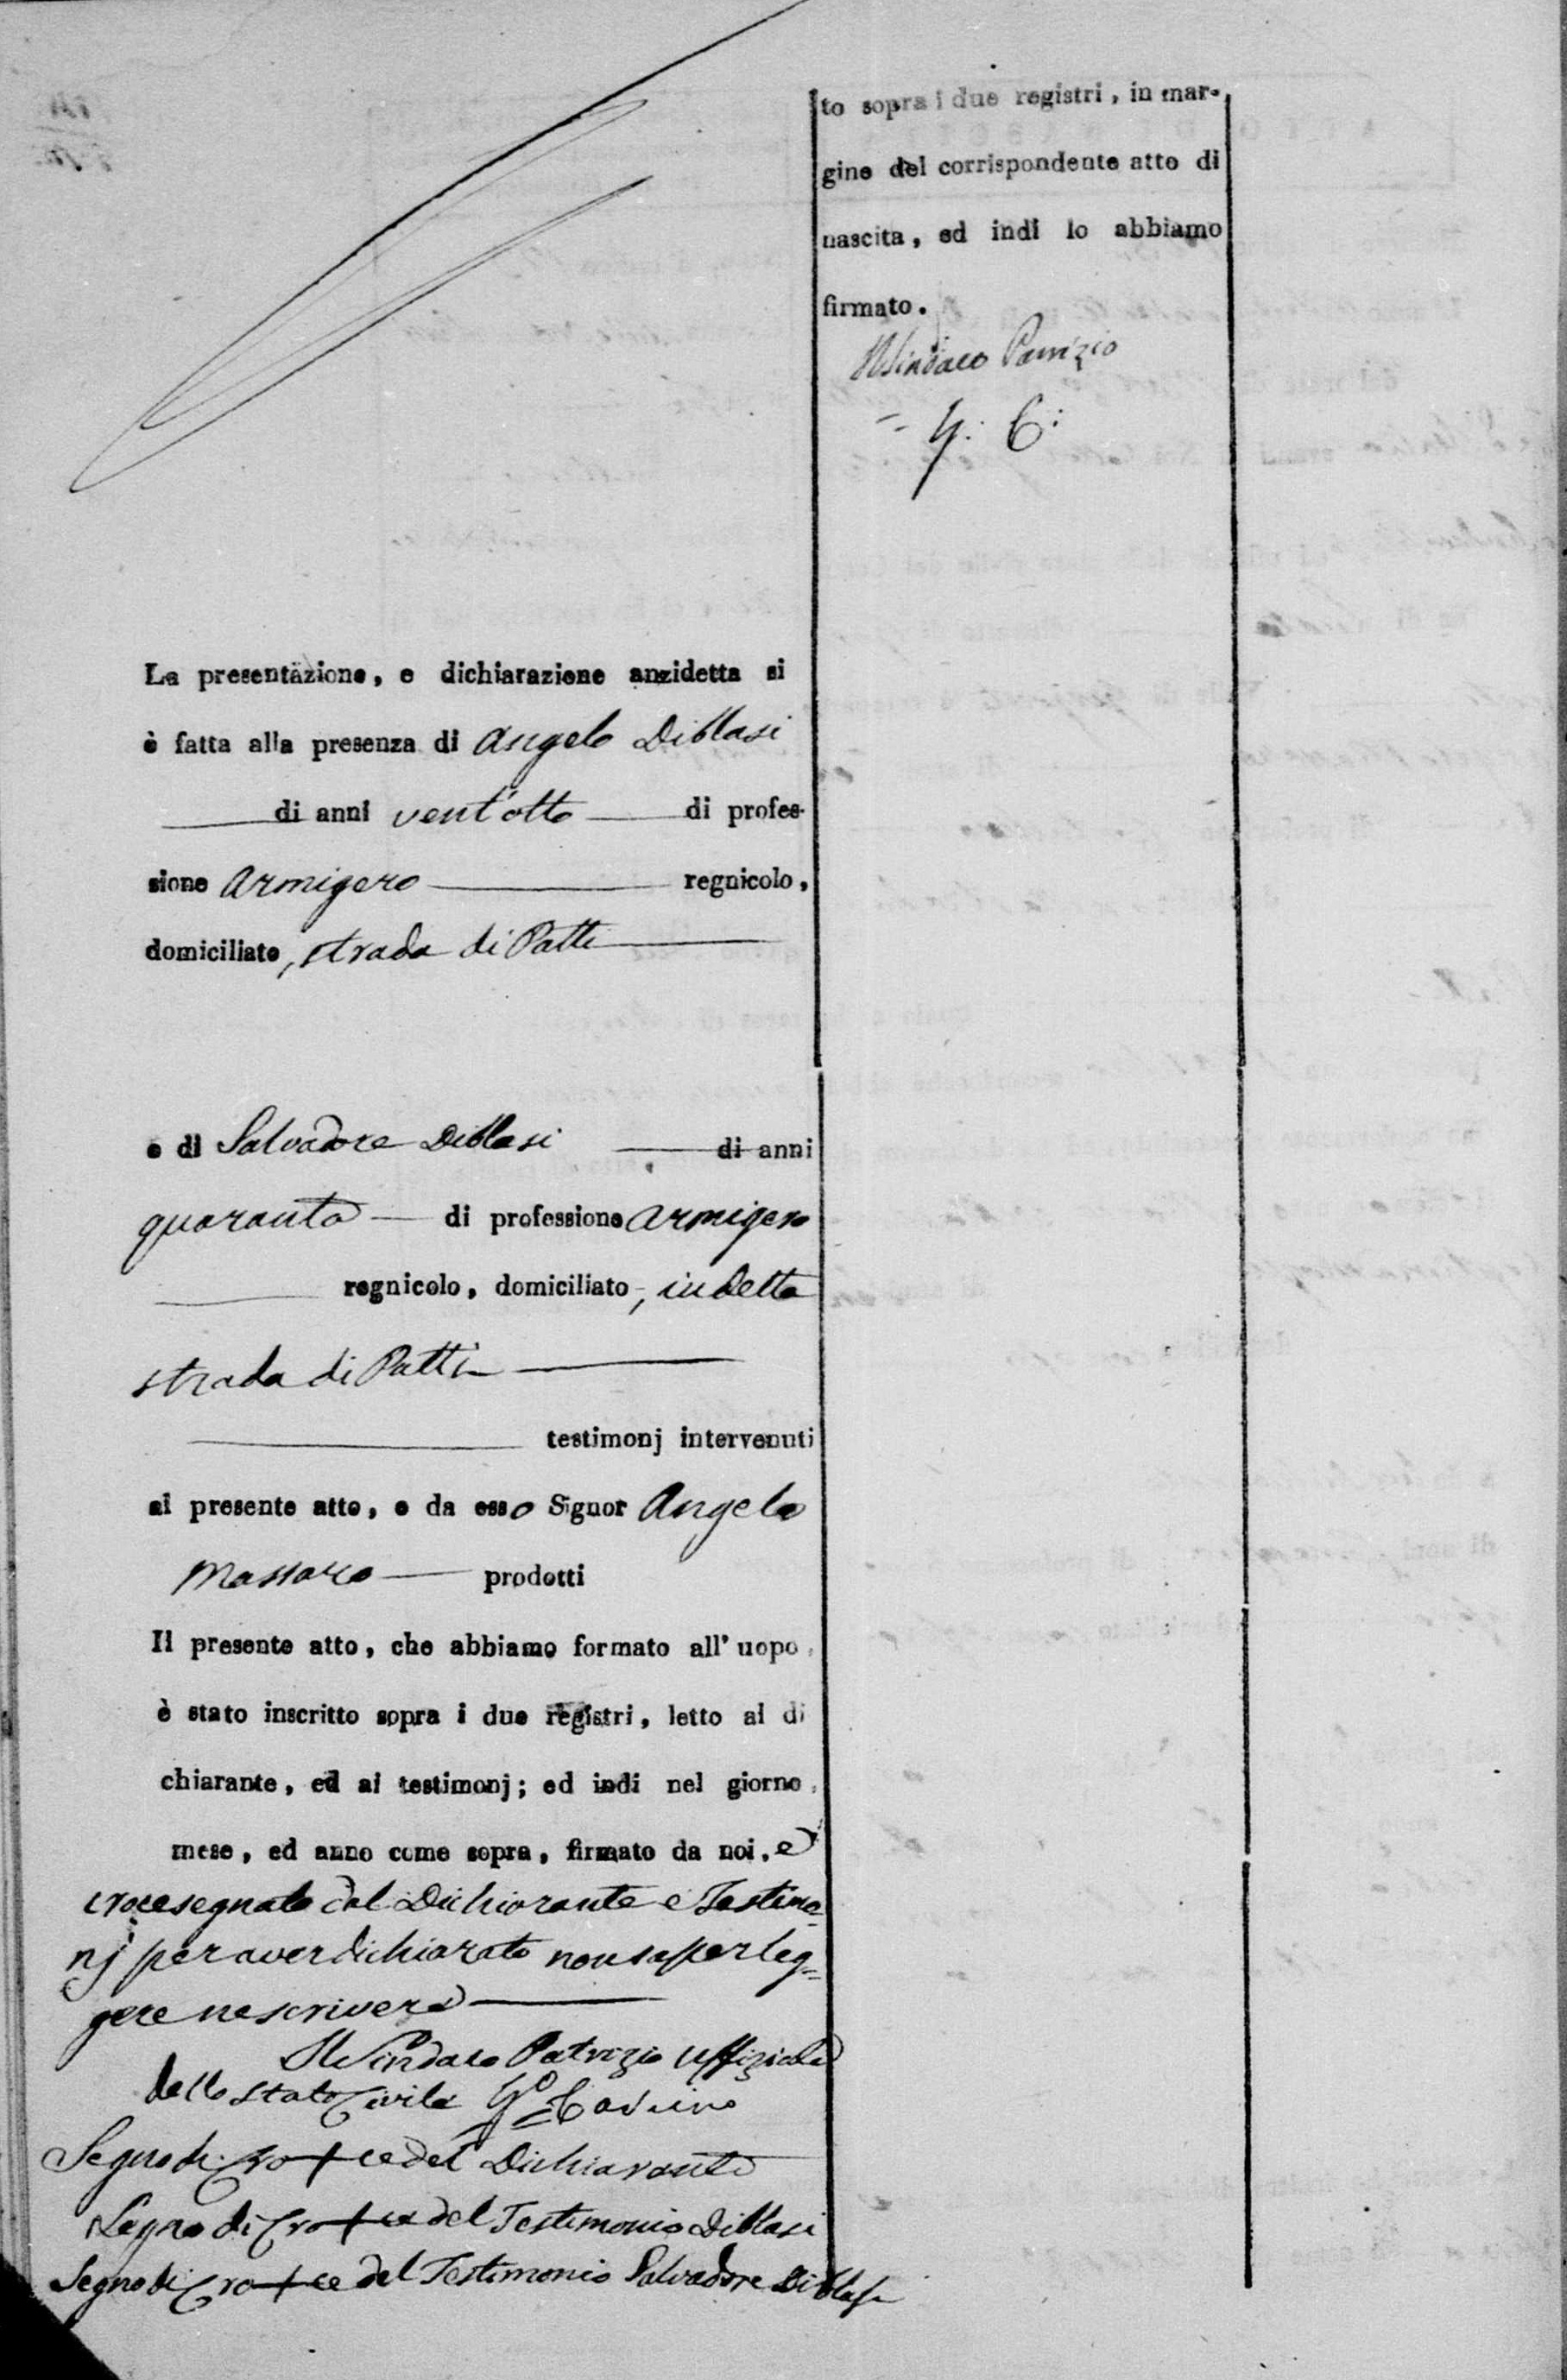 La presentazione, e dichiarazione anzidetta si
è fatta alla presenza di Angelo Diblasi
di anni vent'otto di profes-
sione Armigero regnicolo,
domiciliato, strada di Patti
e di Salvadore Diblasi di anni
quaranta di professione Armigero
regnicolo, domiciliato, in detta
strada di Patti
testimonj intervenuti
al presente atto, e da esso Signor Angelo
Massaro prodotti
Il presente atto, che abbiamo formato all'uopo
è stato inscritto sopra i due registri, letto al di
chiarante, ed ai testimonj; ed indi nel giorno,
mese, ed anno come sopra, firmato da noi, e
crocesegnato dal Dichiarante e Testimo=
nj per aver dichiarato non saper leg=
gere ne scrivere
Il Sindaco Patrizio Uffiziale
dello stato Civile
Segno di Cro+ce del Dichiarante
Segno di Cro+ce del Testimonio Diblasi
Segno di Cro+ce del Testimonio Salvadore Diblasi
to sopra i due registri, in mar-
gine del corrispondente atto di
nascita, ed indi lo abbiamo
firmato.
Il Sindaco Patrizio